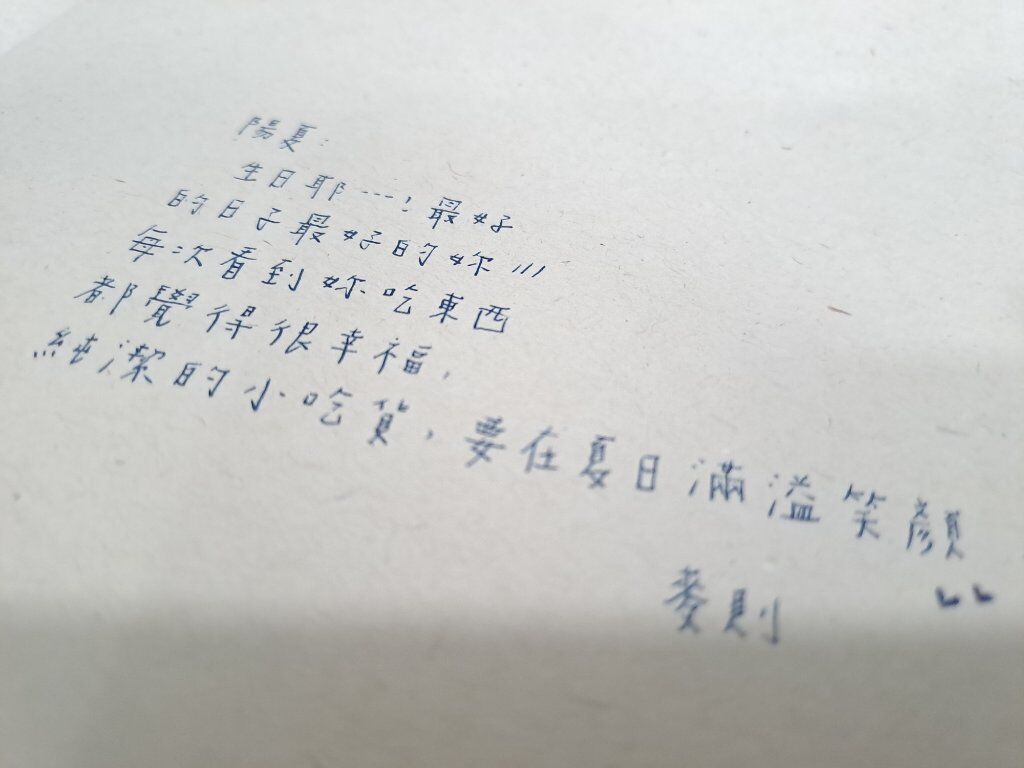 陽夏：
生日耶…！最好
的日子最好的妳!!!
每次看到妳吃東西
都覺得很幸福，
純潔的小吃貨，要在夏日滿溢笑顏
麥則